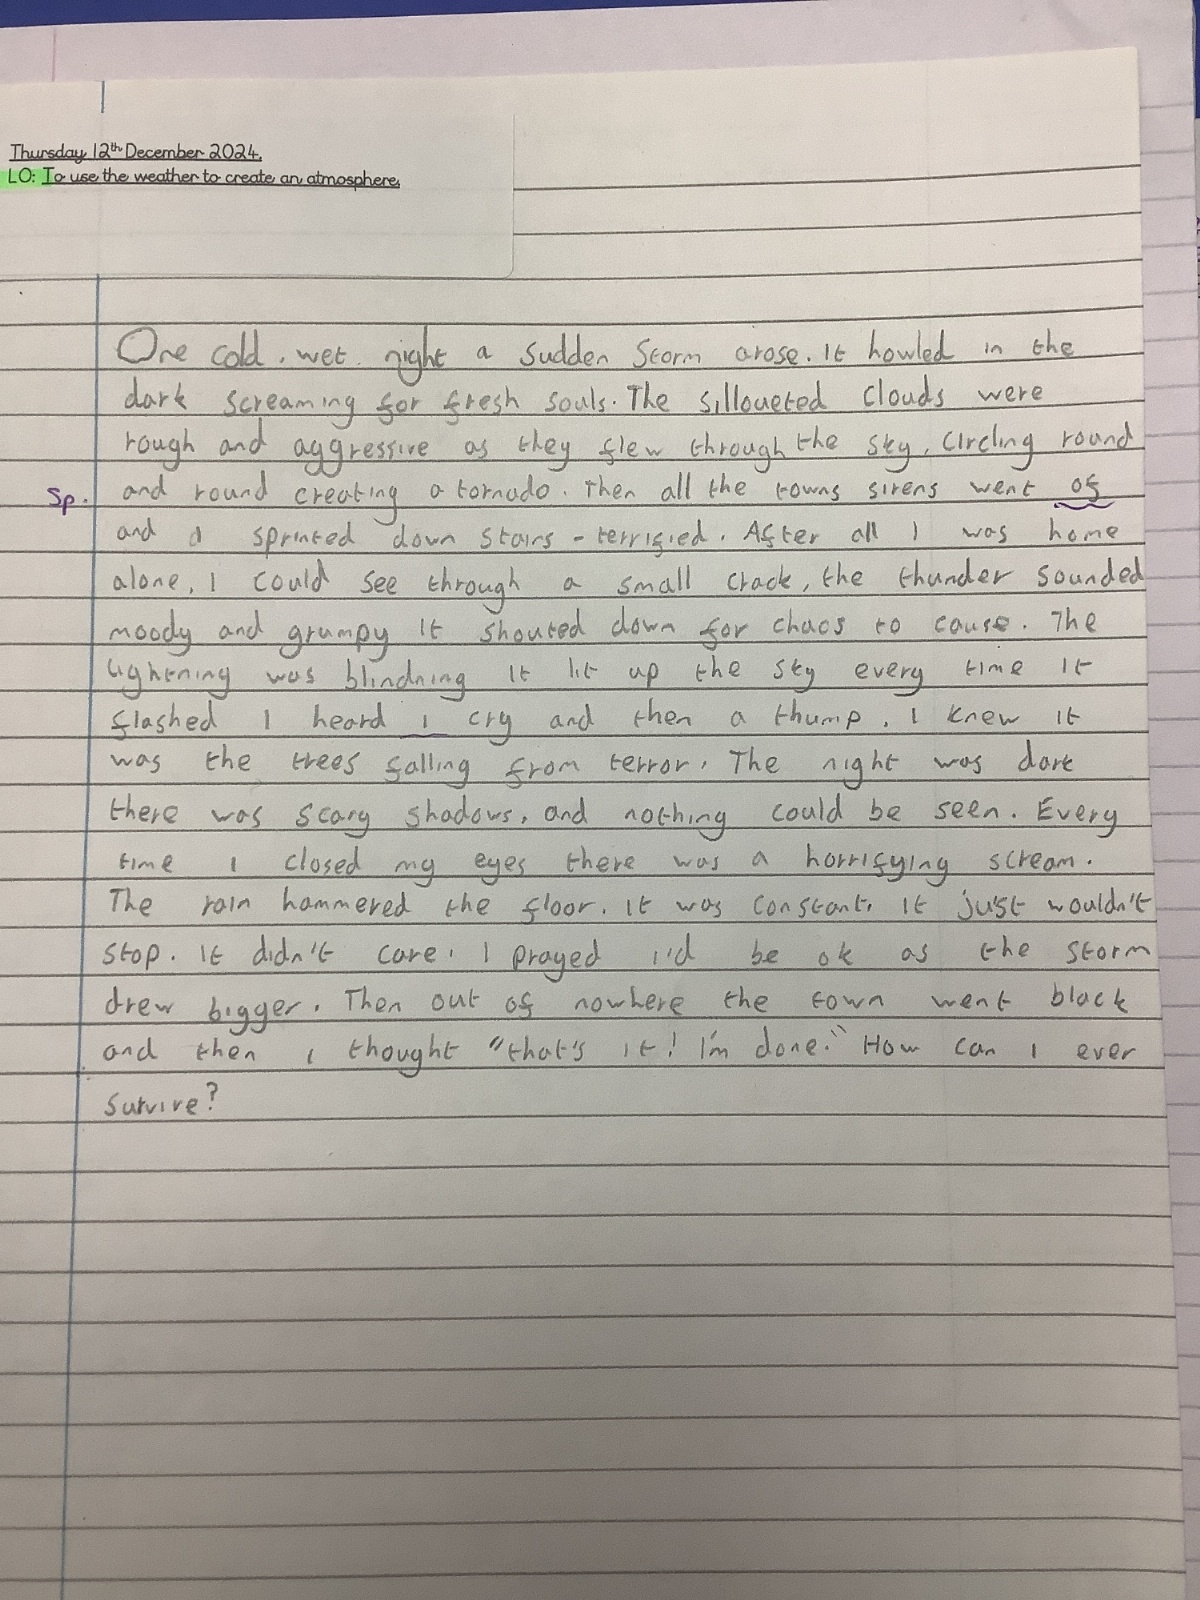 Thursday 12th December 2024.
LO: To use the weather to create an atmosphere.
One cold, wet night a sudden storm arose. It howled in the
dark screaming for fresh souls. The silloueted clouds were
rough and aggressive as they flew through the sky, circling round
Sp. and round creating a tornado. Then all the towns sirens went of
and I sprinted down stairs - terrified. After all I was home
alone, I could see through a small crack, the thunder sounded
moody and grumpy it shouted down for chaos to cause. The
lightning was blindning it lit up the sky every time it
flashed I heard I cry and then a thump, I knew it
was the trees falling from terror. The night was dark
there was scary shadows, and nothing could be seen. Every
time I closed my eyes there was a horrifying scream.
The rain hammered the floor. It was constant, it just wouldn't
stop. It didn't care. I prayed i'd be ok as the storm
drew bigger. Then out of nowhere the town went black
and then I thought "that's it! I'm done." How can I ever
survive?